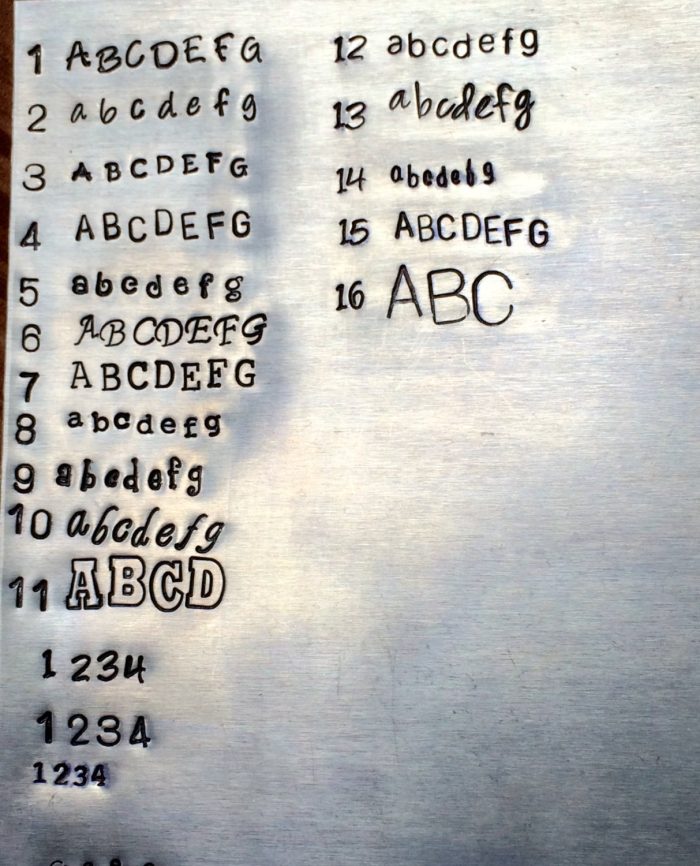 1 ABCDEFG
2 abcdefg
3 ABCDEFG
4 ABCDEFG
5 abcdefg
6 ABCDEFG
7 ABCDEFG
8 abcdefg
9 abcdefg
10 abcdefg
11 ABCD
1234
1234
1234
12 abcdefg
13 abcdefg
14 abcdefg
15 ABCDEFG
16 ABC